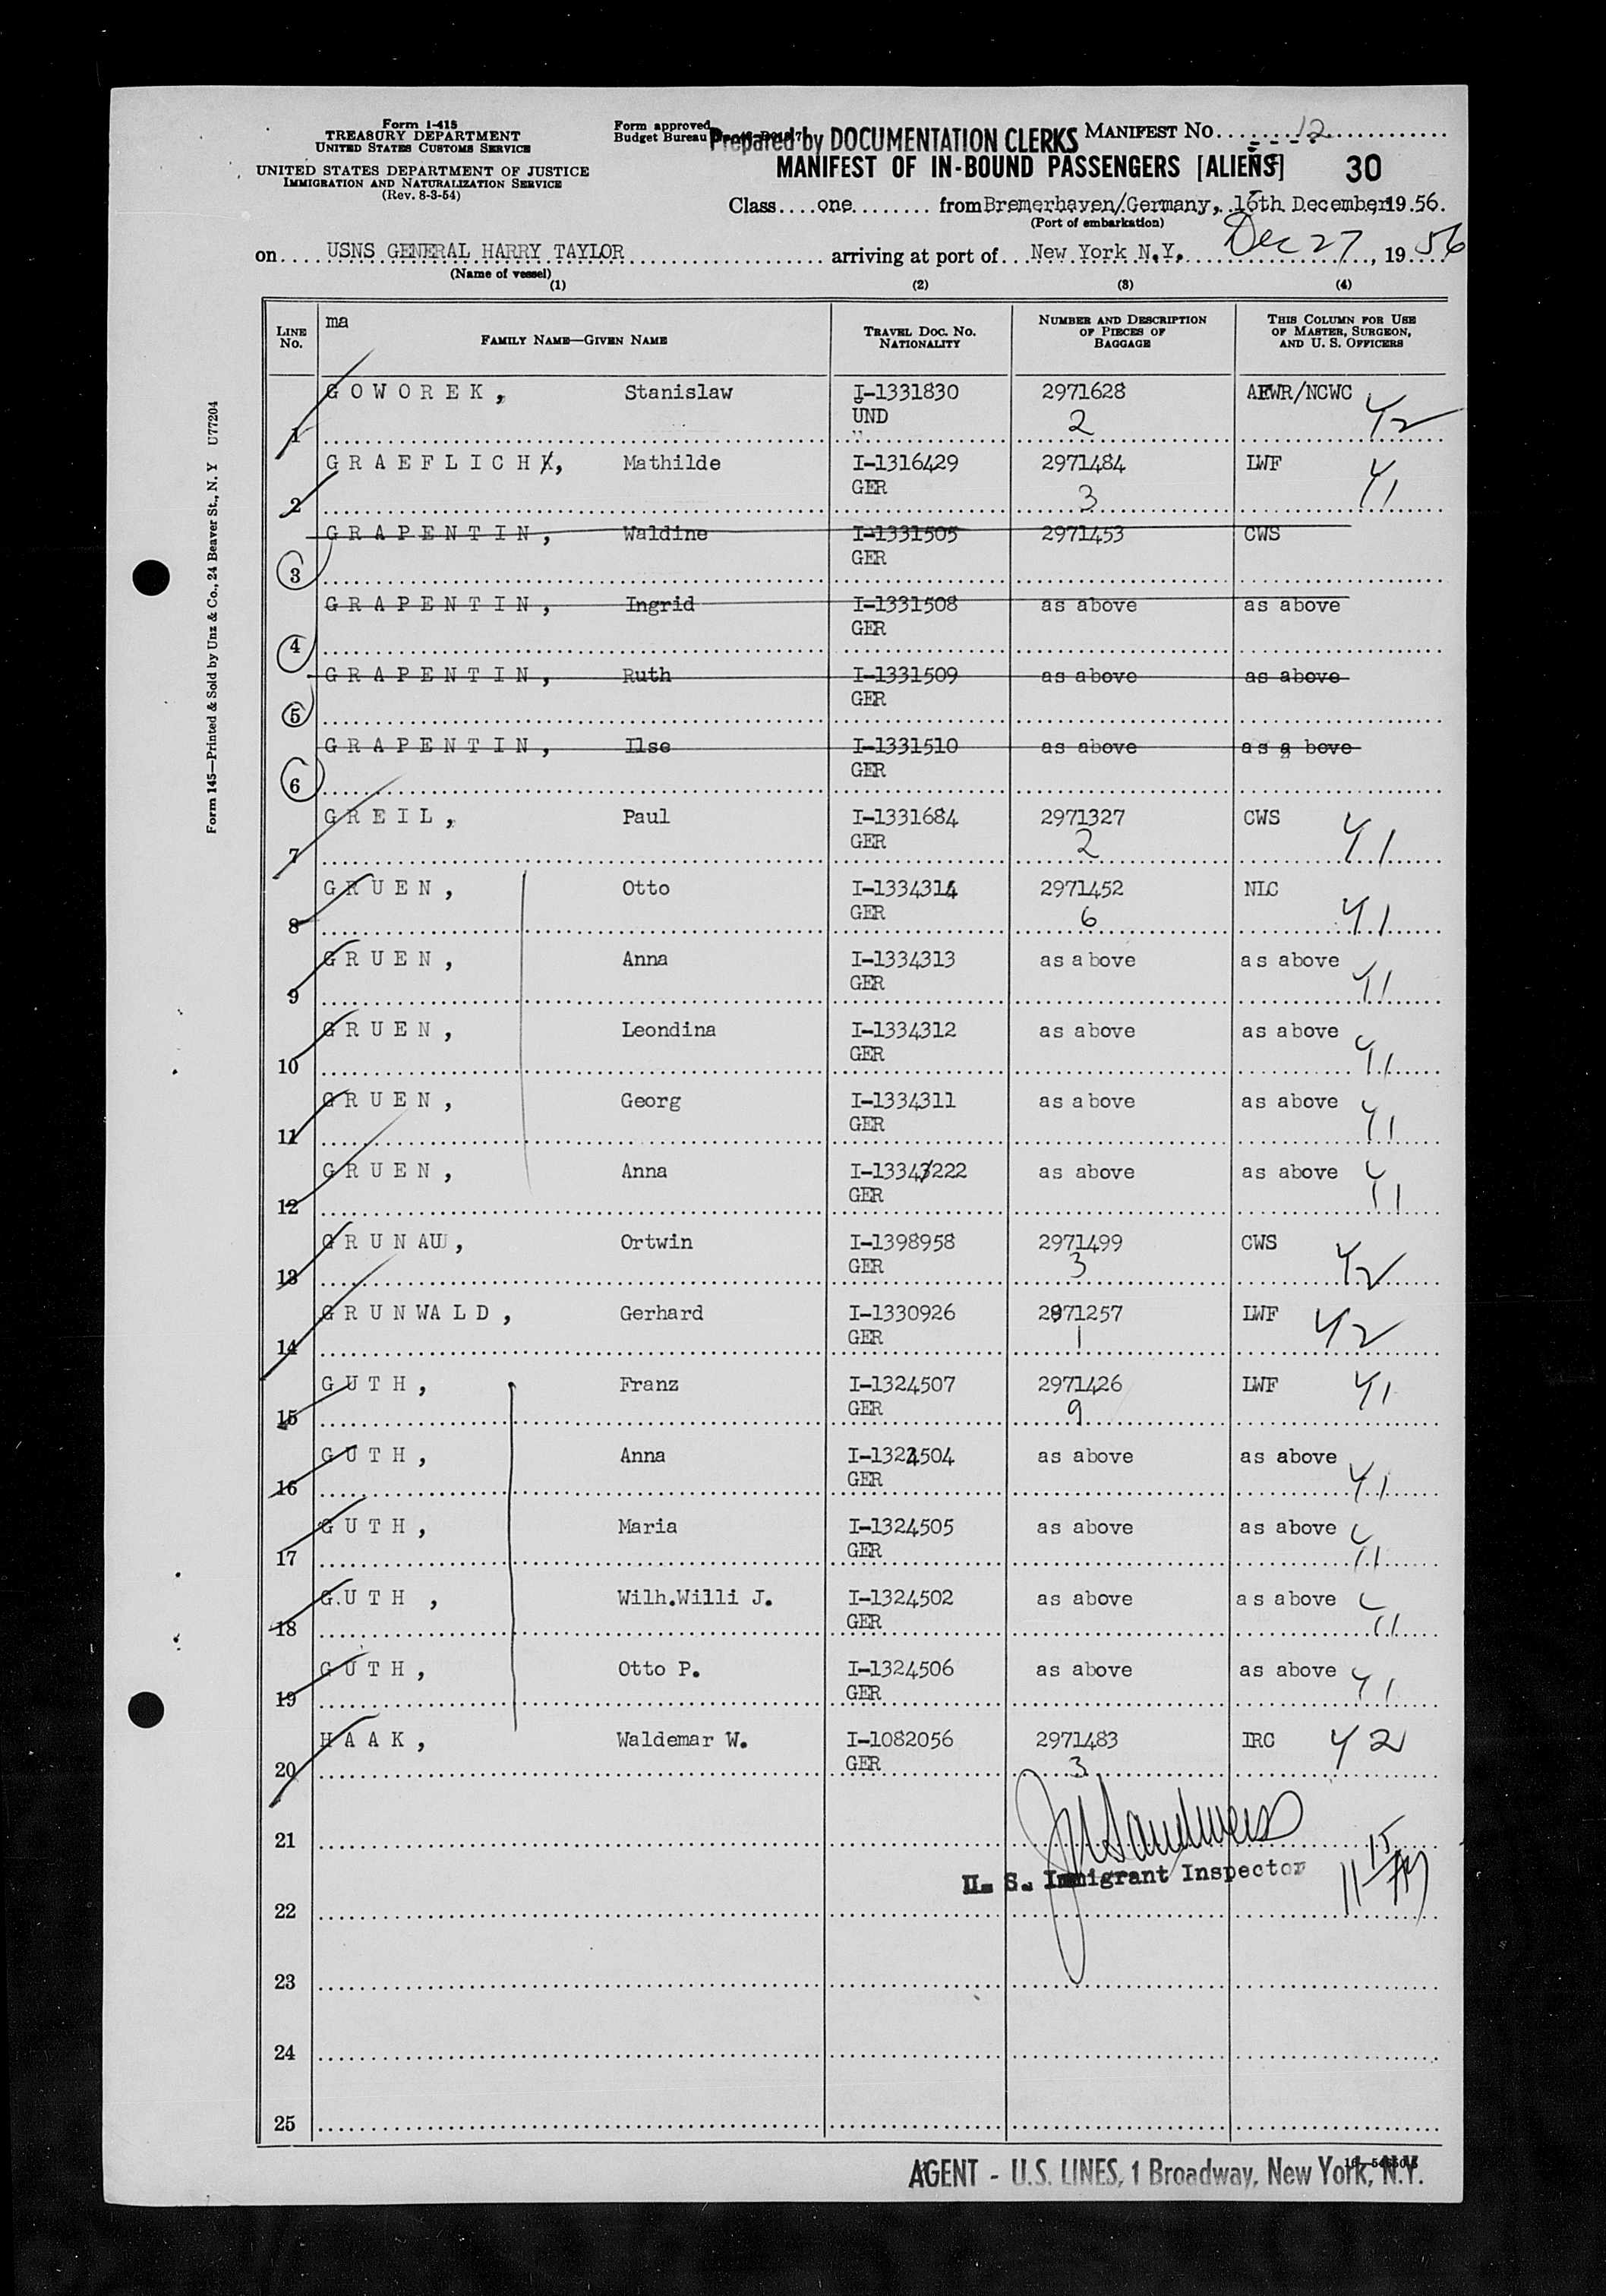 Form I-415
TREASURY DEPARTMENT
UNITED STATES CUSTOMS SERVICE
UNITED STATES DEPARTMENT OF JUSTICE
IMMIGRATION AND NATURALIZATION SERVICE
(Rev. 8-3-54)
Form approved
Budget Bureau
Prepared by DOCUMENTATION CLERKS
MANIFEST No. 12
MANIFEST OF IN-BOUND PASSENGERS [ALIENS] 30
Class one from Bremerhaven/Germany, 16th December 1956.
(Port of embarkation)
on USNS GENERAL HARRY TAYLOR arriving at port of New York N.Y. Dec 27, 1956
(Name of vessel)
(1) (2) (3) (4)
LINE No. ma FAMILY NAME—GIVEN NAME TRAVEL DOC. No. NATIONALITY NUMBER AND DESCRIPTION OF PIECES OF BAGGAGE THIS COLUMN FOR USE OF MASTER, SURGEON, AND U. S. OFFICERS
1 GOWOREK, Stanislaw I-1331830 UND " 2971628 2 AFWR/NCWC 42
2 GRAEFLICH, Mathilde I-1316429 GER 2971484 3 LWF 41
3 GRAPENTIN, Waldine I-1331505 GER 2971453 CWS
4 GRAPENTIN, Ingrid I-1331508 GER as above as above
5 GRAPENTIN, Ruth I-1331509 GER as above as above
6 GRAPENTIN, Ilse I-1331510 GER as above as a bove
7 GREIL, Paul I-1331684 GER 2971327 2 CWS 41
8 GRUEN, Otto I-1334314 GER 2971452 6 NLC 41
9 GRUEN, Anna I-1334313 GER as above as above 41
10 GRUEN, Leondina I-1334312 GER as above as above 41
11 GRUEN, Georg I-1334311 GER as above as above 41
12 GRUEN, Anna I-13343222 GER as above as above 41
13 GRUNAU, Ortwin I-1398958 GER 2971499 3 CWS 42
14 GRUNWALD, Gerhard I-1330926 GER 2971257 1 LWF 42
15 GUTH, Franz I-1324507 GER 2971426 9 LWF 41
16 GUTH, Anna I-1324504 GER as above as above 41
17 GUTH, Maria I-1324505 GER as above as above 41
18 GUTH, Wilh.Willi J. I-1324502 GER as above as above 41
19 GUTH, Otto P. I-1324506 GER as above as above 41
20 HAAK, Waldemar W. I-1082056 GER 2971483 3 IRC 42
21
U. S. Immigrant Inspector
22
23
24
25
AGENT - U.S. LINES, 1 Broadway, New York, N.Y.
Form 145—Printed & Sold by Unz & Co., 24 Beaver St., N.Y U77204